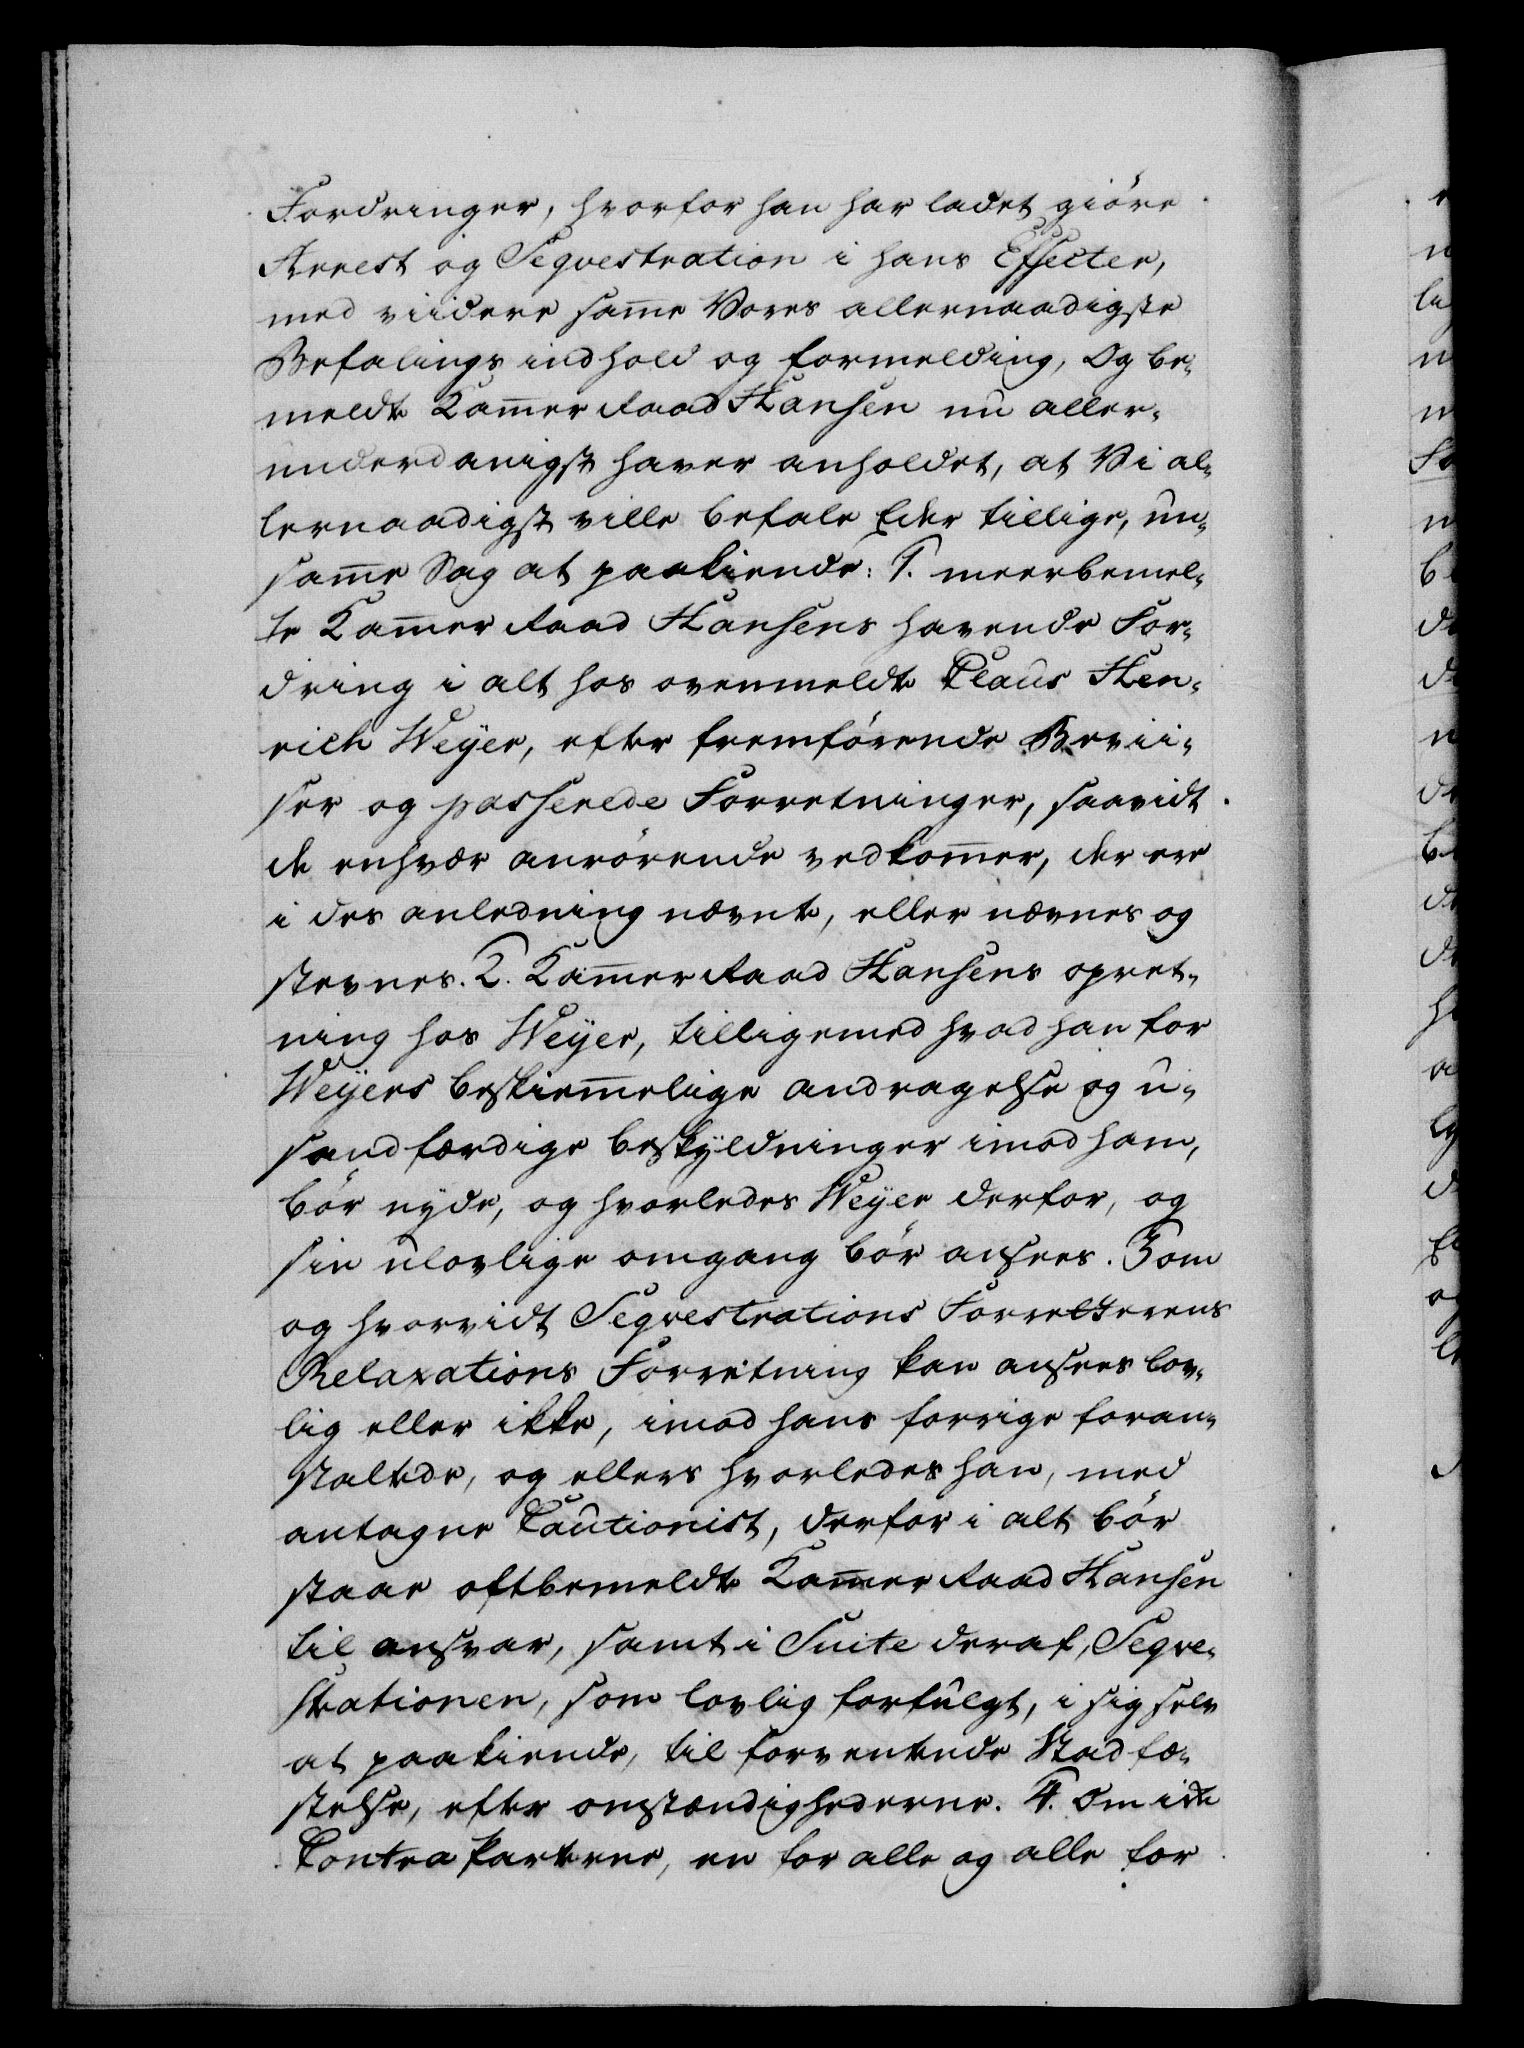 Fordringer, hvorfor han har ladet giöre
Arrest og Seqvestration i hans Effecter,
med viidere samme Vores allernaadigste
Befalings indhold og formelding, Og be-
meldte Kammer Raad Hansen nu aller-
underdanigst haver anholdet, at Vi al-
lernaadigst ville befale Eder tillige, un-
samme Sag at paakiende: 1. meerbemel-
te Kammer Raad Hansens havende For-
dring i alt hos ovenmeldte Claus Hen-
rich Weÿer, efter fremförende Bevii-
ser og passerede Forretninger, saavidt
de enhver anrörende vedkommer, der ere
i des anledning nævnte, eller nævnes og
stevnes. 2. Kammer Raad Hansens opret-
ning hos Weÿer, tilligemed hvad han for
Weÿers beskiemmelige andragelse og u-
sandfærdige beskÿldninger imod ham,
bör nyde, og hvorledes Weÿer derfor, og
sin ulovlige omgang bör ansees. 3 om
og hvorvidt Seqvestrations Forretterens
Relaxations Forretning kan ansees lov-
lig eller ikke, imod hans forrige foran-
staltede, og ellers hvorledes han, med
antagne Cautionist, derfor i alt bör
staae oftbemeldte Kammer Raad Hansen
til ansvar, samt i Suite deraf, Seqve-
strationen, som lovlig forfulgt, i sig selv
at paakiende, til forventende Stadfæ-
stelse, efter omstændighederne. 4. Om ide
Contra Parterne, en for alle og alle for